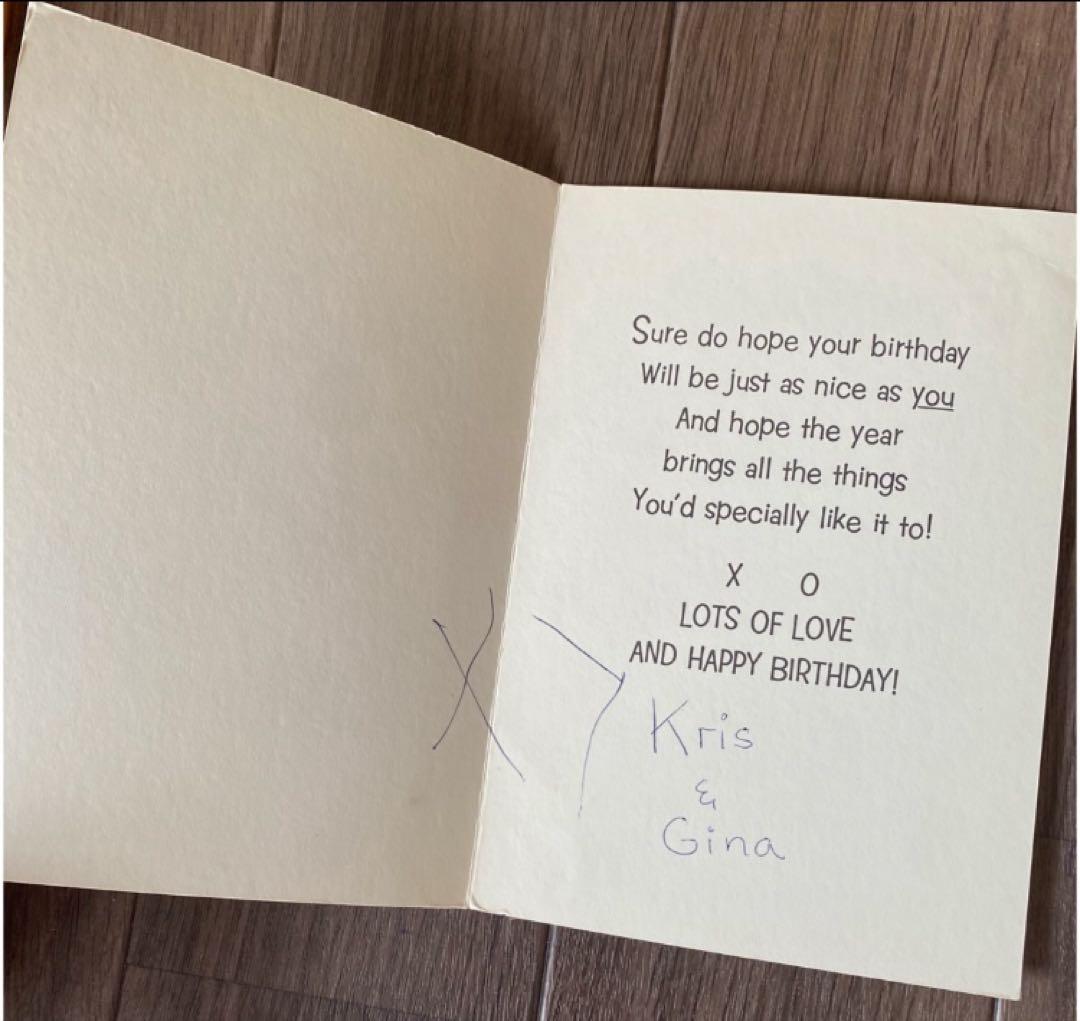 Sure do hope your birthday
Will be just as nice as you
And hope the year
brings all the things
You'd specially like it to!
X O
LOTS OF LOVE
AND HAPPY BIRTHDAY!
X
Kris
&
Gina